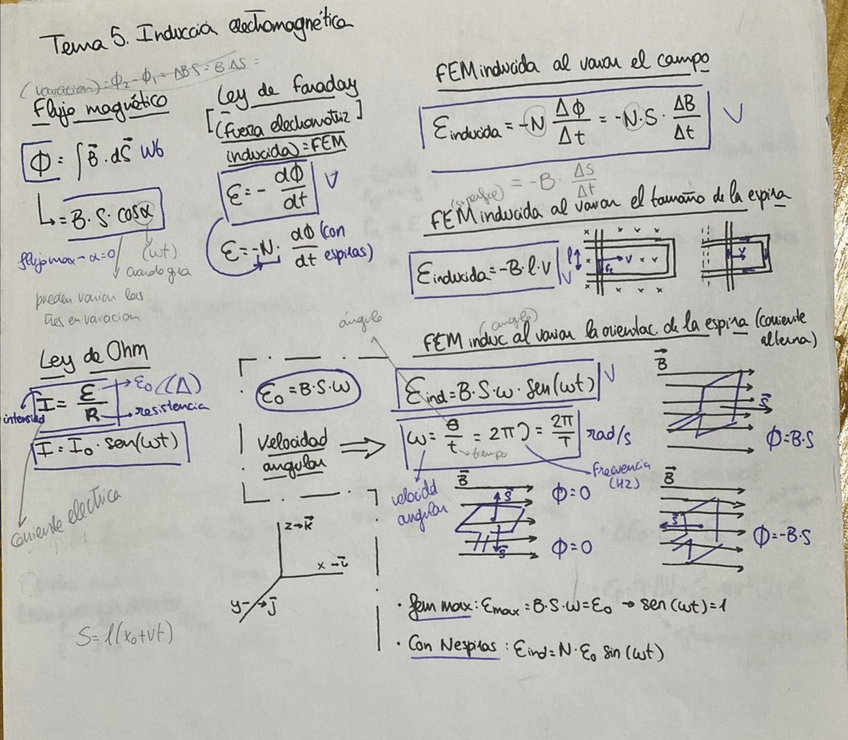 Tema 5. Inducción electromagnética
(variación) = Φ₂ - Φ₁ = ΔB·S = B·ΔS =
Flujo magnético
Φ = ∫ B⃗ · dS⃗ Wb
↳ = B·S·cosα
flujo max → α=0
(wt)
cuando gira
pueden variar las
tres en variación
Ley de Faraday
[(fuerza electromotriz]
inducida) = FEM
ε = - dΦ/dt
ε = -N · dΦ/dt (con
espiras)
FEM inducida al variar el campo
ε inducida = -N ΔΦ/Δt = -N·S · ΔB/Δt
(superficie) = -B · ΔS/Δt
FEM inducida al variar el tamaño de la espira
ε inducida = -B·l·v
l
v
(angulo)
FEM induc al variar la orientac de la espira (corriente
alterna)
ángulo
ε ind = B·S·w·sen(wt)
Ley de Ohm
I = ε/R
→ ε₀ (Δ)
→ resistencia
intensidad
I = I₀ · sen(wt)
corriente electrica
ε₀ = B·S·w
velocidad
angular
⇒
w = θ/t = 2πν = 2π/T rad/s
→ tiempo
frecuencia
(Hz)
velocidad
angular
B⃗
S⃗
Φ=B·S
B⃗
S⃗
Φ=0
Φ=0
S⃗
B⃗
S⃗
Φ=-B·S
z→k⃗
x→i⃗
y→j⃗
S = l(x₀+vt)
· fem max: εmax = B·S·w = ε₀ → sen(wt)=1
· Con N espiras: εind = N·ε₀ sin(wt)